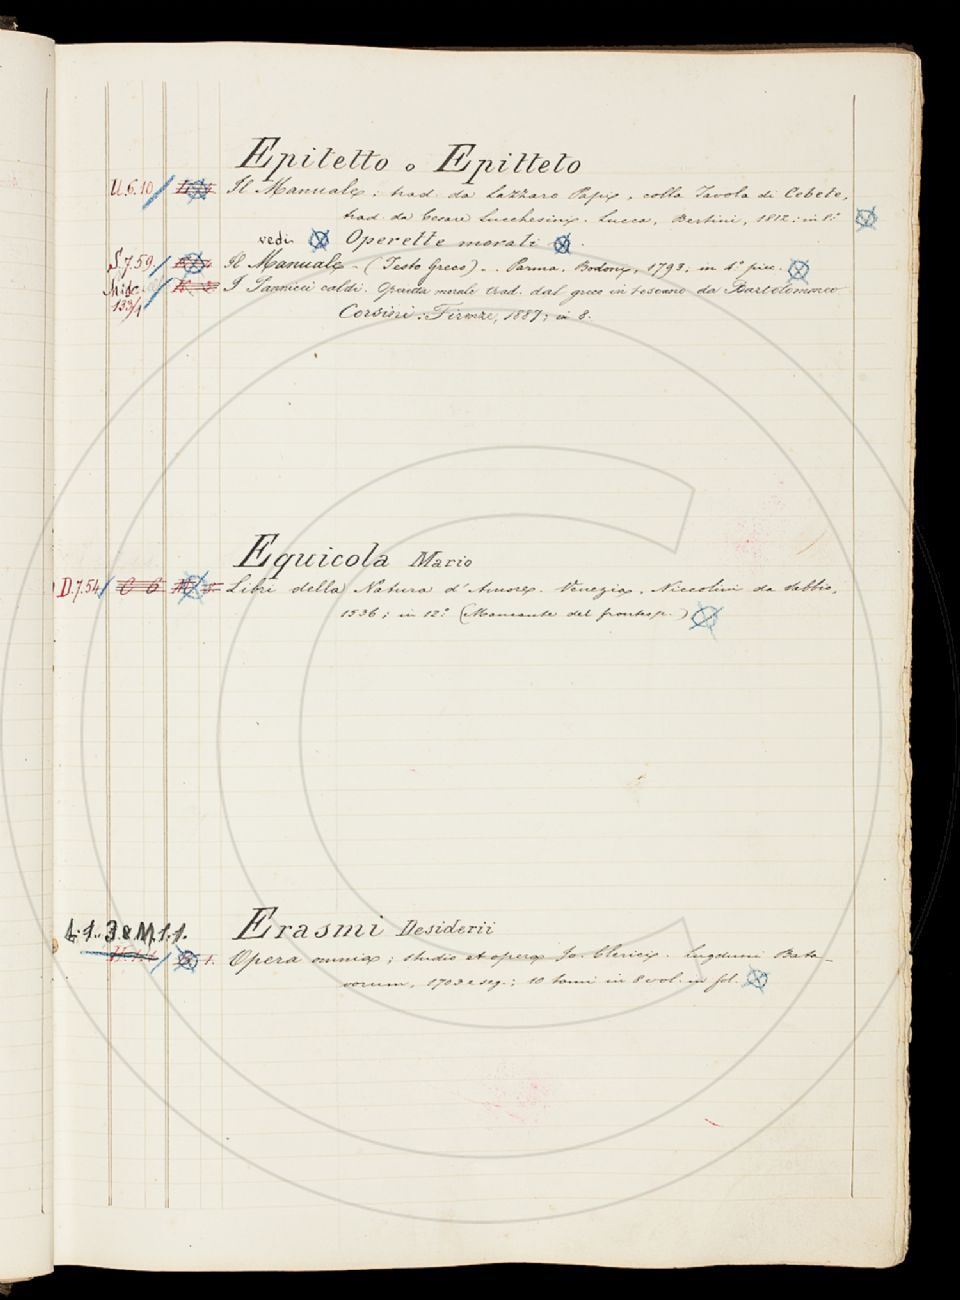 Epitetto o Epitteto
U.6.10 Il Manuale; trad. da Lazzaro Papi, colla Tavola di Cebete,
trad. da Cesare Lucchesini. Lucca, Bertini, 1812; in 8.°
vedi Operette morali.
S.7.59 Il Manuale - (Testo Greco) - Parma, Bodoni, 1793; in 4.° picc.
Misc. I Tannicci caldi. Operetta morale trad. dal greco in toscano da Bartolommeo
133/1 Corsini: Firenze, 1887; in 8.
Equicola Mario
D.7.54 C 6 Libri della Natura d'Amore. Venezia, Niccolini da Sabbio,
1536; in 12.° (Mancante del frontesp.)
Erasmi Desiderii
L.1.3.8 M.1.1.
1. Opera omnia; studio et opera Jo. Clerici. Lugduni Bata-
vorum, 1703 e seg.; 10 tomi in 8 vol. in fol.